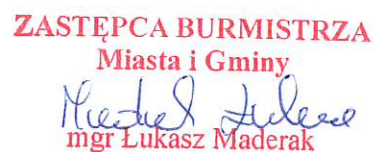 ZASTĘPCA BURMISTRZA
Miasta i Gminy
mgr Łukasz Maderak